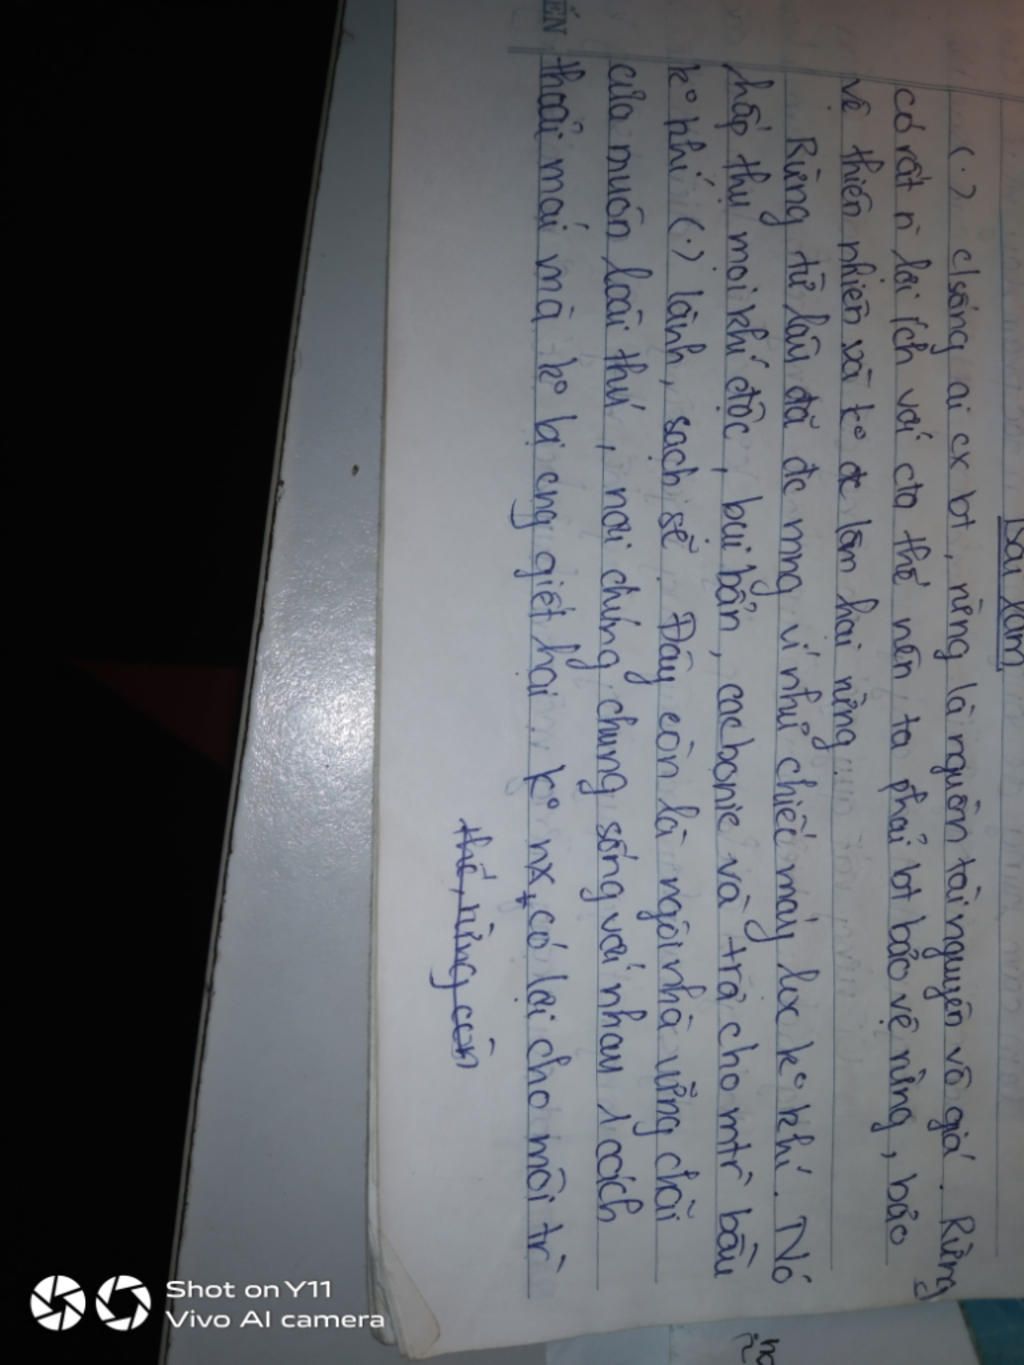 Bài làm
(.) c/sống ai cx bt, rừng là nguồn tài nguyên vô giá. Rừng
có rất n` lợi ích với cta thế nên ta phải bt bảo vệ rừng, bảo
vệ thiên nhiên và ko đc làm hại rừng
Rừng từ lâu đã đc mng ví như chiếc máy lọc ko khí. Nó
hấp thụ mọi khí độc, bụi bẩn, cacbonic và trả cho mtr` bầu
ko khí (.) lành, sạch sẽ. Đây còn là ngôi nhà vững chãi
của muôn loài thú, nơi chúng chung sống với nhau 1 cách
thoải mái mà ko bị cng giết hại ko nx, có lợi cho môi tr`
thế, rừng còn
ẾN
Shot on Y11
Vivo AI camera